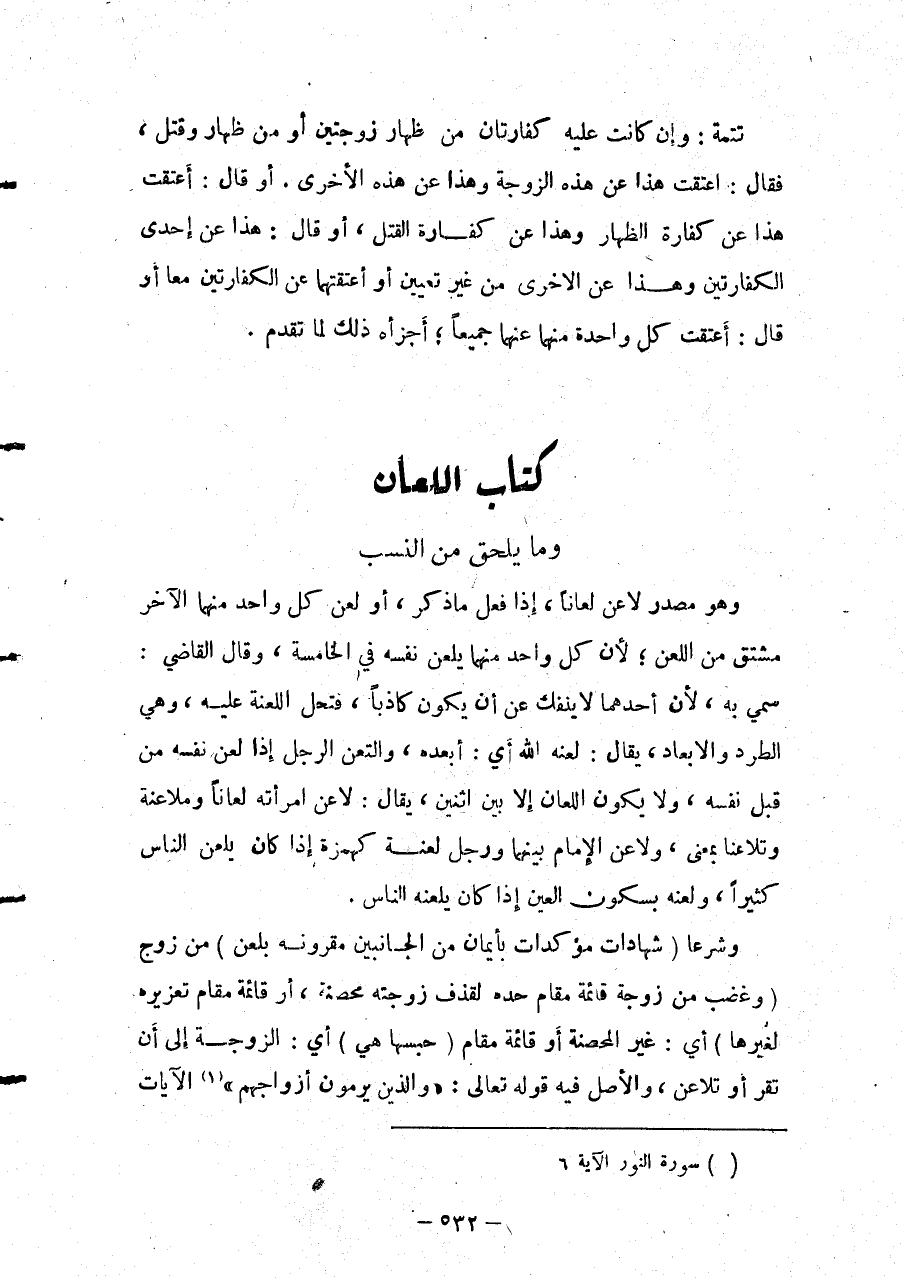 تتمة : وإن كانت عليه كفارتان من ظهار زوجتين أو من ظهار وقتل ،
فقال : اعتقت هذا عن هذه الزوجة وهذا عن هذه الأخرى . أو قال : أعتقت
هذا عن كفارة الظهار وهذا عن كفارة القتل ، أو قال : هذا عن إحدى
الكفارتين وهذا عن الاخرى من غير تعيين أو أعتقتها عن الكفارتين معا أو
قال : أعتقت كل واحدة منها عنها جميعاً ؛ أجزأه ذلك لما تقدم .
كتاب اللعان
وما يلحق من النسب
وهو مصدر لاعن لعاناً ، إذا فعل ماذكر ، أو لعن كل واحد منها الآخر
مشتق من اللعن ؛ لأن كل واحد منها يلعن نفسه في الخامسة ، وقال القاضي :
سمي به ، لأن أحدهما لاينفك عن أن يكون كاذباً ، فتحل اللعنة عليه ، وهي
الطرد والابعاد ، يقال : لعنه الله أي : أبعده ، والتعن الرجل إذا لعن نفسه من
قبل نفسه ، ولا يكون اللعان إلا بين اثنين ، يقال : لاعن امرأته لعاناً وملاعنة
وتلاعنا بمعنى ، ولاعن الإمام بينها ورجل لعنة كهمزة إذا كان يلعن الناس
كثيراً ، ولعنه بسكون العين إذا كان يلعنه الناس .
وشرعا ( شهادات مؤكدات بأيمان من الجانبين مقرونه بلعن ) من زوج
( وغضب من زوجة قائمة مقام حده لقذف زوجته محصنة ، أر قائمة مقام تعزيره
لغيرها ) أي : غير المحصنة أو قائمة مقام ( حبسها هي ) أي : الزوجة إلى أن
تقر أو تلاعن ، والأصل فيه قوله تعالى : «والذين يرمون أزواجهم» (١) الآيات
( ) سورة النور الآية ٦
— ٥٣٢ —